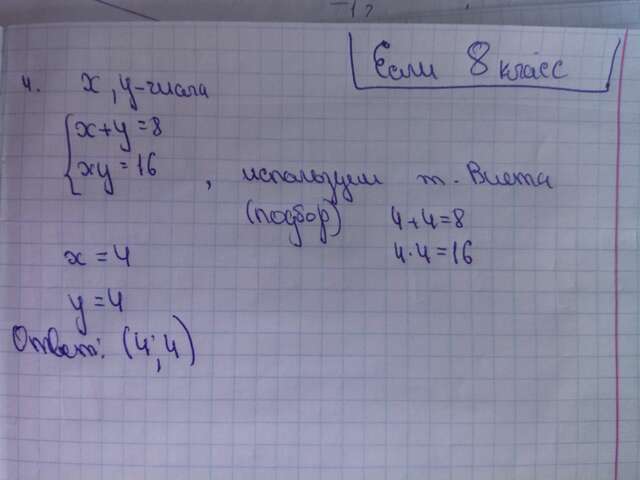 Если 8 класс
4. x, y-числа
x+y=8
xy=16, используем т. Виета
(подбор) 4+4=8
4·4=16
x=4
y=4
Ответ: (4;4)